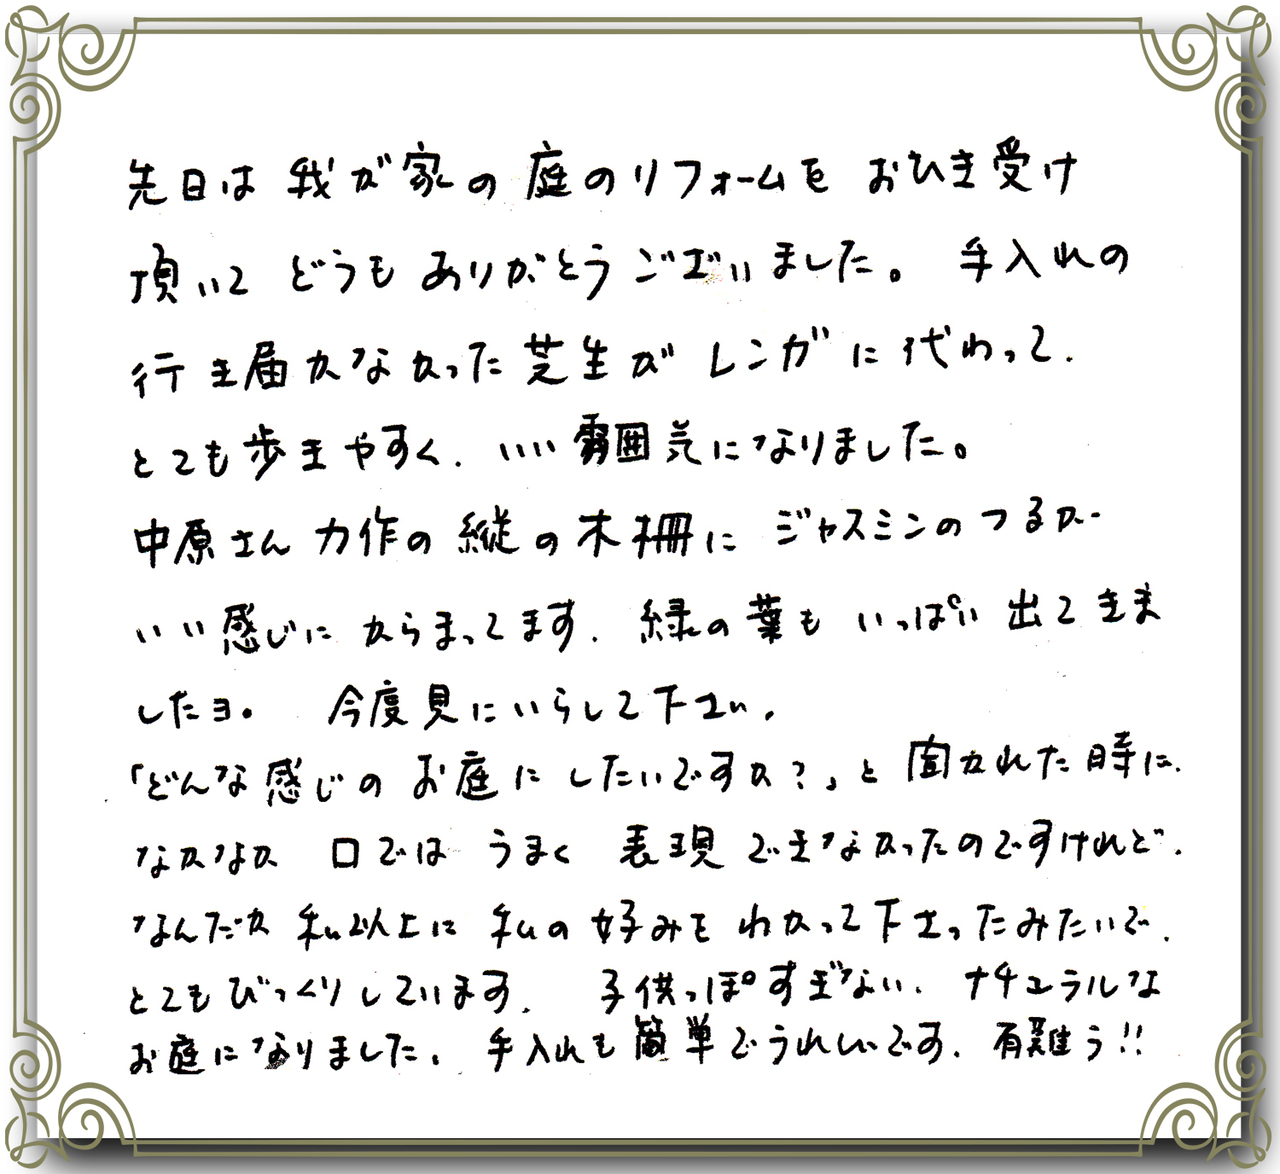 先日は 我が家の 庭のリフォームを おひき受け
頂いて どうも ありがとうございました。 手入れの
行き届かなかった芝生が レンガに代わって、
とても歩きやすく、いい雰囲気になりました。
中原さん力作の縦の木柵に ジャスミンのつるが
いい感じに からまってます、緑の葉も いっぱい出てきま
したヨ。 今度見にいらして下さい、
「どんな感じの お庭に したいですか？」と 聞かれた時に、
なかなか 口では うまく 表現できなかったのですけれど、
なんだか 私以上に 私の好みを わかって下さったみたいで、
とてもびっくりしています、 子供っぽすぎない、ナチュラルな
お庭になりました、手入れも簡単でうれしいです、有難う!!